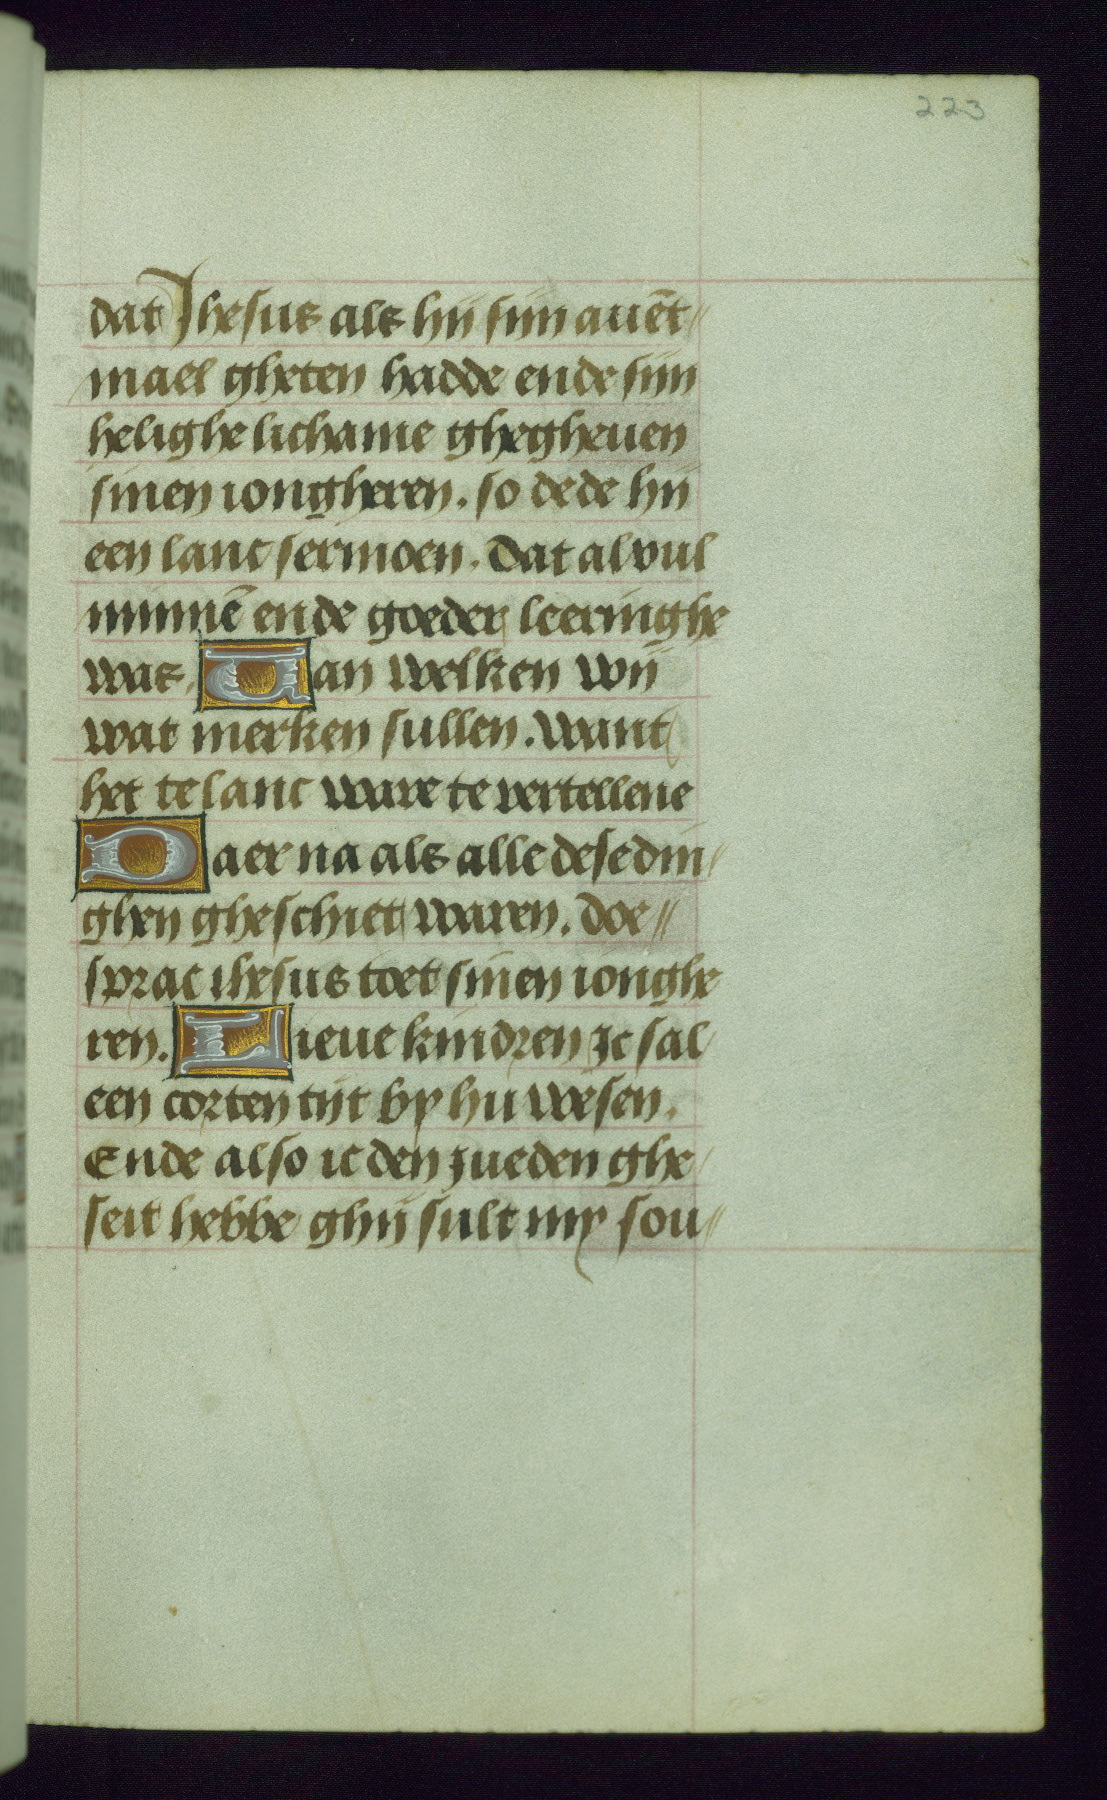 223
dat Jhesus als hij sijn auēt//
mael gheten hadde ende sijn
helighe lichame ghegheuen
sinen iongheren. so dede hij
een lanc sermoen. Dat al vul
minnē ende goeder leeringhe
was. Uan welken wij
wat merken sullen. Want
het te lanc ware te vertellene
Daer na als alle dese din/
ghen gheschiet waren. doe//
sprac ihesus toet sinen ionghe
ren. Lieue kindren Ic sal
een corten tijt by hu wesen.
Ende also ic den Jueden ghe/
seit hebbe ghij sult my sou//